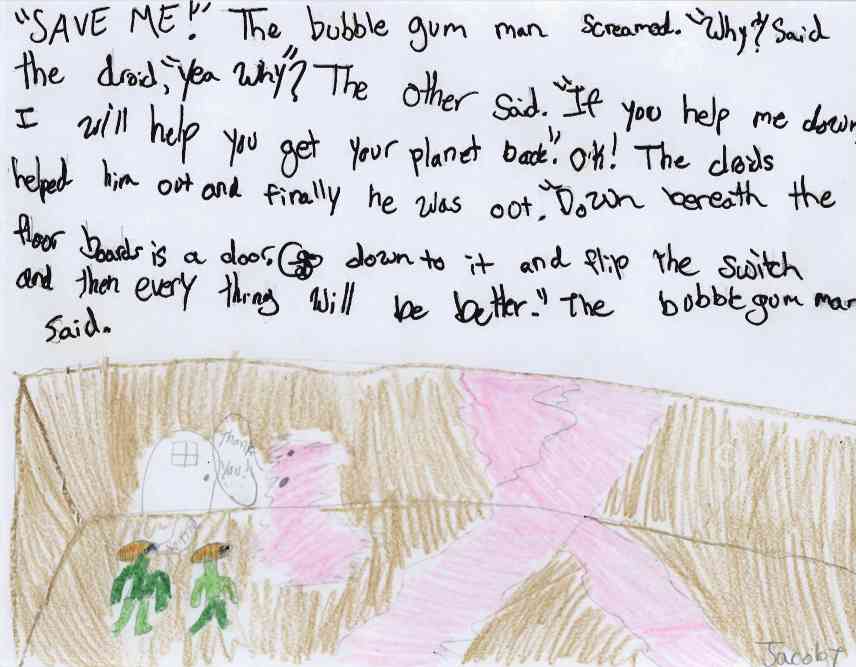 "SAVE ME!" The bubble gum man screamed. "Why?" Said
the droid, "Yea Why"? The other Said. "If you help me down
I will help you get your planet back." OK! The doids
helped him out and finally he was oot. "Down bereath the
floor boards is a door. Go down to it and flip the switch
and then every thing will be better." The bobble gum man
Said.
Thank
You!
Jacoby